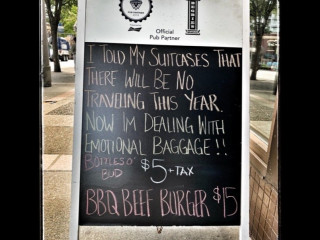 Official
Pub Partner
I TOLD MY SUITCASES THAT
THERE WILL BE NO
TRAVELING THIS YEAR.
NOW IM DEALING WITH
EMOTIONAL BAGGAGE!!
BOTTLES O'
BUD $5+TAX
BBQ BEEF BURGER $15